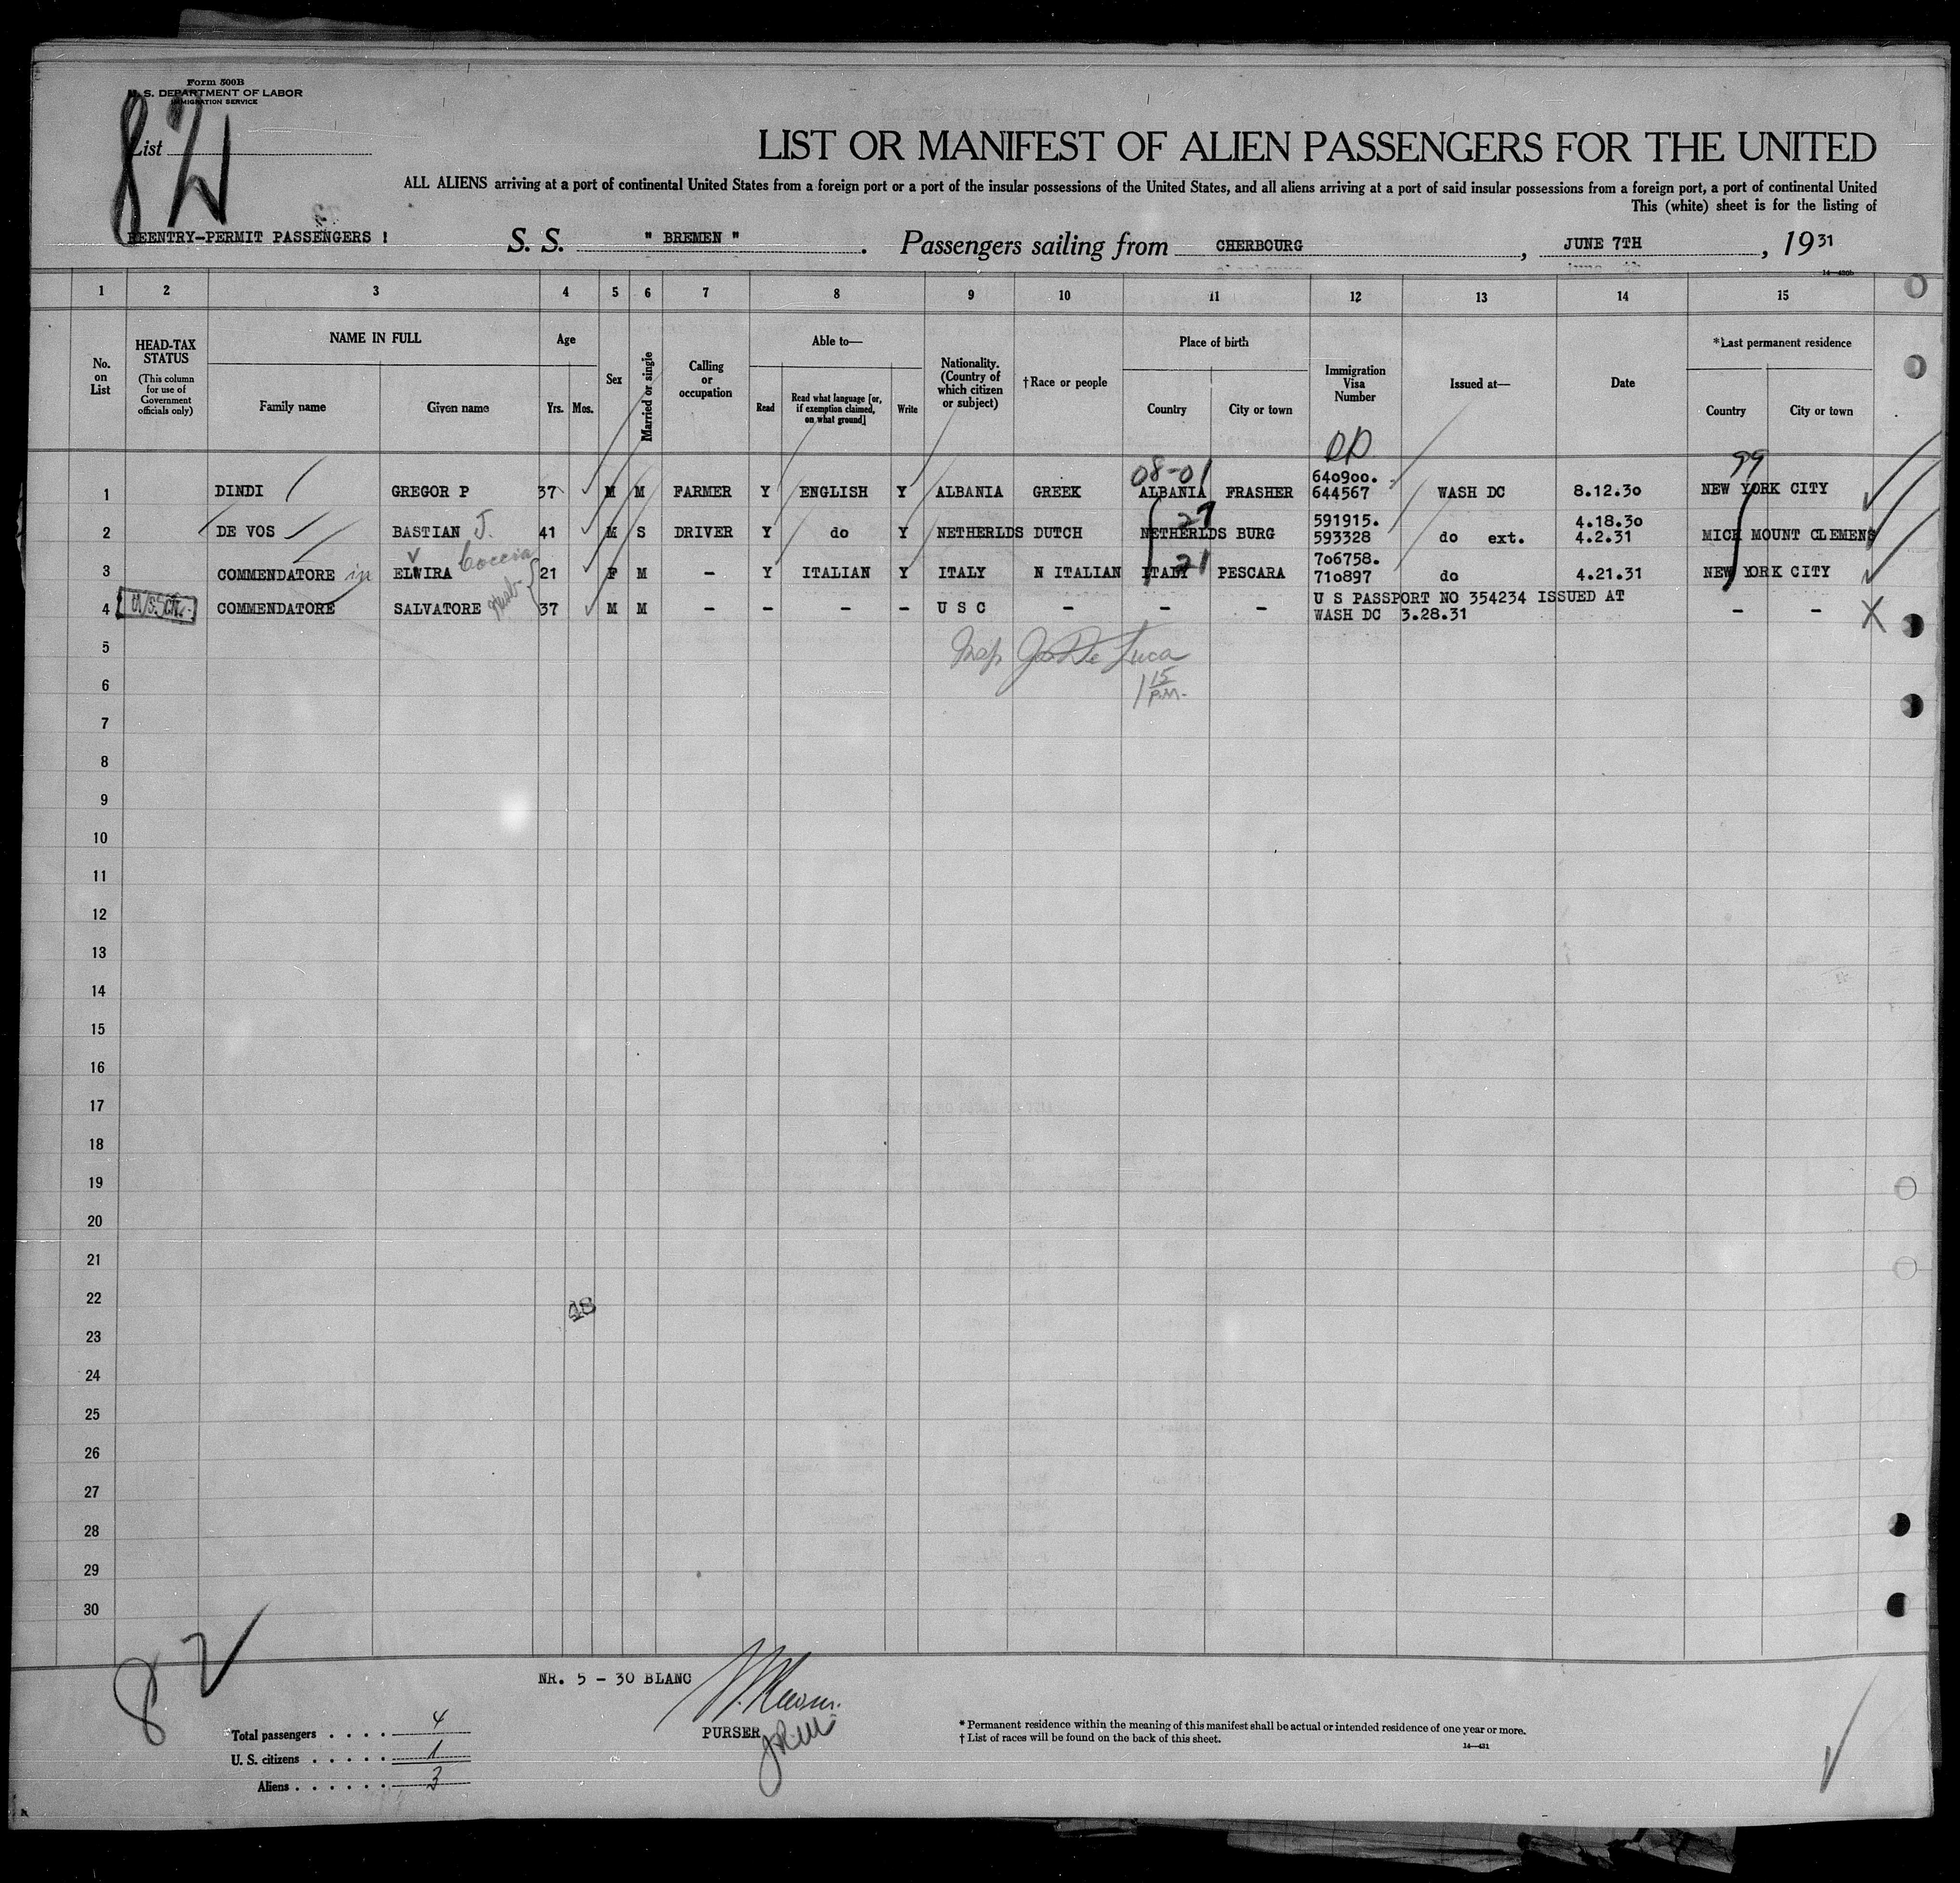 Form 500B
U. S. DEPARTMENT OF LABOR
IMMIGRATION SERVICE
List
82
LIST OR MANIFEST OF ALIEN PASSENGERS FOR THE UNITED
ALL ALIENS arriving at a port of continental United States from a foreign port or a port of the insular possessions of the United States, and all aliens arriving at a port of said insular possessions from a foreign port, a port of continental United
This (white) sheet is for the listing of
REENTRY-PERMIT PASSENGERS !
S. S. " BREMEN ". Passengers sailing from CHERBOURG, JUNE 7TH, 1931
14—430b
1 2 3 4 5 6 7 8 9 10 11 12 13 14 15
No. on List
HEAD-TAX STATUS (This column for use of Government officials only)
NAME IN FULL
Family name Given name
Age
Yrs. Mos.
Sex
Married or single
Calling or occupation
Able to—
Read Read what language [or, if exemption claimed, on what ground] Write
Nationality. (Country of which citizen or subject)
†Race or people
Place of birth
Country City or town
Immigration Visa Number
Issued at—
Date
*Last permanent residence
Country City or town
08-01 99
1 DINDI GREGOR P 37 M M FARMER Y ENGLISH Y ALBANIA GREEK ALBANIA FRASHER 640900. 644567 WASH DC 8.12.30 NEW YORK CITY
27
2 DE VOS BASTIAN J. 41 M S DRIVER Y do Y NETHERLDS DUTCH NETHERLDS BURG 591915. 593328 do ext. 4.18.30 4.2.31 MICH MOUNT CLEMENS
21
3 COMMENDATORE in ELWIRA V Coccia 21 F M - Y ITALIAN Y ITALY N ITALIAN ITALY PESCARA 706758. 710897 do 4.21.31 NEW YORK CITY
4 U.S. CIT. COMMENDATORE SALVATORE 37 M M - - - - U S C - - - U S PASSPORT NO 354234 ISSUED AT WASH DC 3.28.31 - - X
5
Insp Jos De Luca
6
1 15 P.M.
7
8
9
10
11
12
13
14
15
16
17
18
19
20
21
22
48
23
24
25
26
27
28
29
30
82
NR. 5 - 30 BLANC
PURSER
Total passengers . . . . 4
U. S. citizens . . . . . 1
Aliens . . . . . . 3
* Permanent residence within the meaning of this manifest shall be actual or intended residence of one year or more.
† List of races will be found on the back of this sheet.
14—431